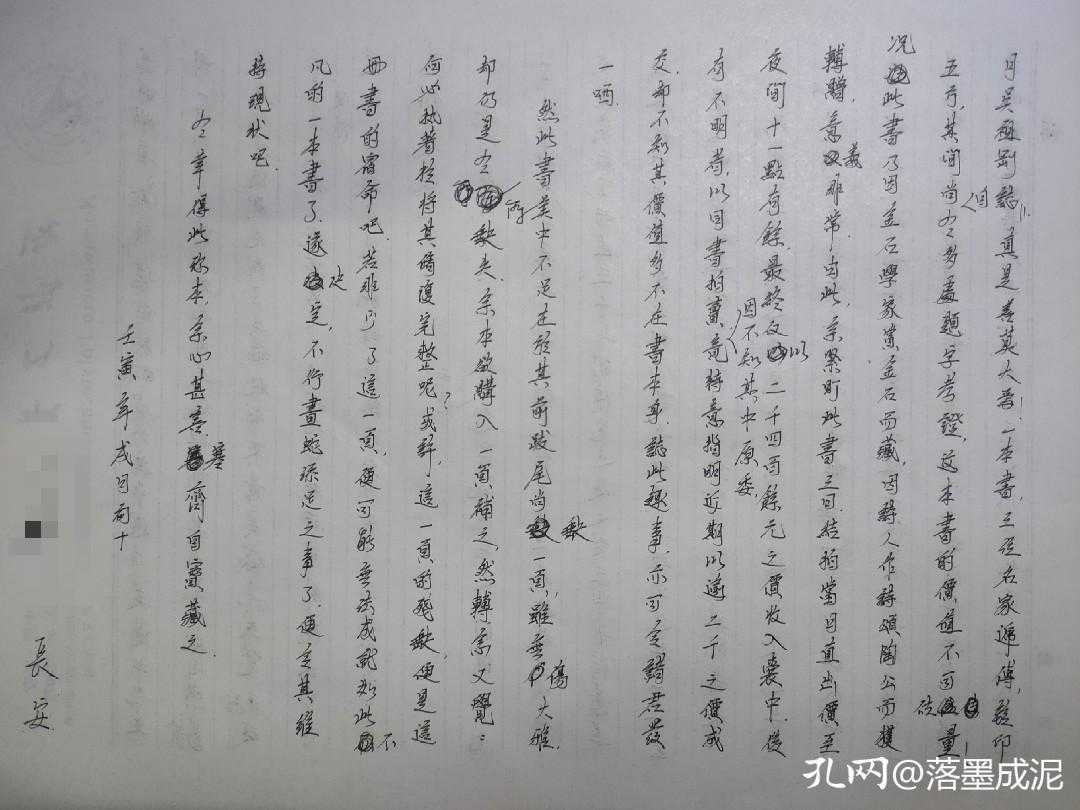 月吳猛剛誌。"真是善莫大焉！一本書，三位名家遞傳，鈐印
五方，其間尚有多處題字考證，這本書的價值不可估量！
況此書乃因金石學家業金石而藏，因辭人作辭頌陶公而獲
轉贈，意義非常。由此，余緊盯此書三日，結拍當日直出價至
夜間十一點有餘，最終以二千四百餘元之價收入囊中。後
有不明者，以同書拍賣，竟特意指明近期以逾二千之價成
交，却不知其價值多不在書本身，因不知其中原委 誌此趣事，亦可令諸君發
一哂。
然此書美中不足在於其前跋尾尚缺一頁，雖無傷大雅，
却仍是有所缺失，余本欲購入一頁補之，然轉念又覺：
何必執著於將其脩復完整呢？或許，這一頁的殘缺，便是這
冊書的宿命吧。若非少了這一頁，便可能無法成就如此不
凡的一本書了。遂決定，不行畫蛇添足之事了，便令其維
持現狀吧。
有幸得此珍本，余心甚喜，齋自寶藏之。
壬寅年戌月初十
長安
孔网@落墨成泥